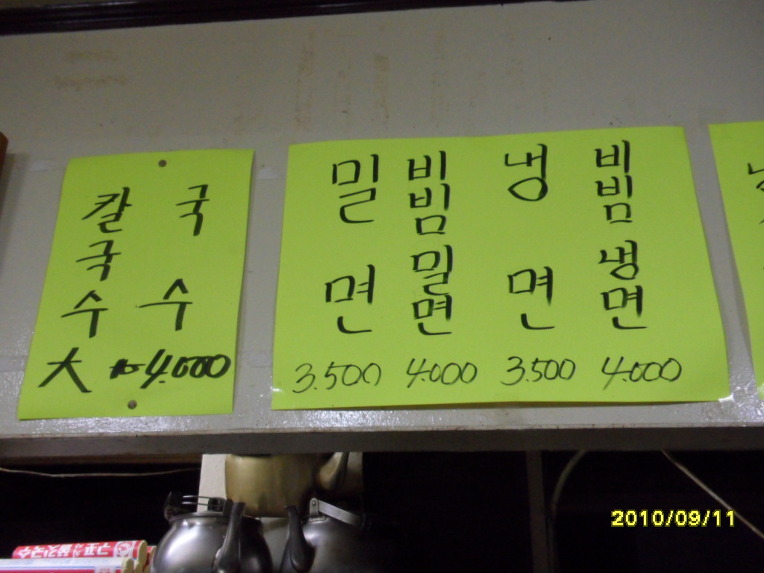 칼국수 국수
大 4.000
밀면 비빔밀면 냉면 비빔냉면
3.500 4.000 3.500 4.000
2010/09/11